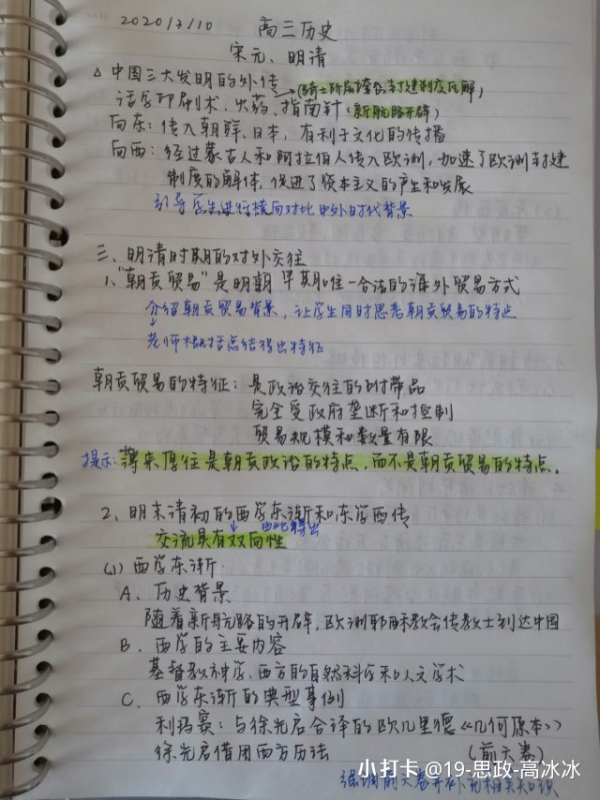 2020/3/10 高三历史
宋元、明清
△ 中国三大发明的外传
(骑士阶层 封建制度瓦解)
活字印刷术、火药、指南针 (新航路开辟)
向东:传入朝鲜、日本,有利于文化的传播
向西:经过蒙古人和阿拉伯人传入欧洲,加速了欧洲封建
制度的解体,促进了资本主义的产生和发展
引导学生进行横向对比中外时代背景
三、明清时期的对外交往
1、“朝贡贸易”是明朝早期唯一合法的海外贸易方式
介绍朝贡贸易背景,让学生同时思考朝贡贸易的特点
老师概括总结得出特征
朝贡贸易的特征:是政治交往的附带品
完全受政府垄断和控制
贸易规模和数量有限
提示:薄来厚往是朝贡政治的特点,而不是朝贡贸易的特点.
2、明末清初的西学东渐和东学西传
由此得出
交流具有双向性
(1) 西学东渐:
A、历史背景
随着新航路的开辟,欧洲耶稣教会传教士到达中国
B、西学的主要内容
基督教神学、西方的自然科学和人文学术
C、西学东渐的典型事例
利玛窦:与徐光启合译的欧几里德《几何原本》
徐光启借用西方历法 (前六卷)
强调前六卷并补充相关知识
小打卡 @19-思政-高冰冰